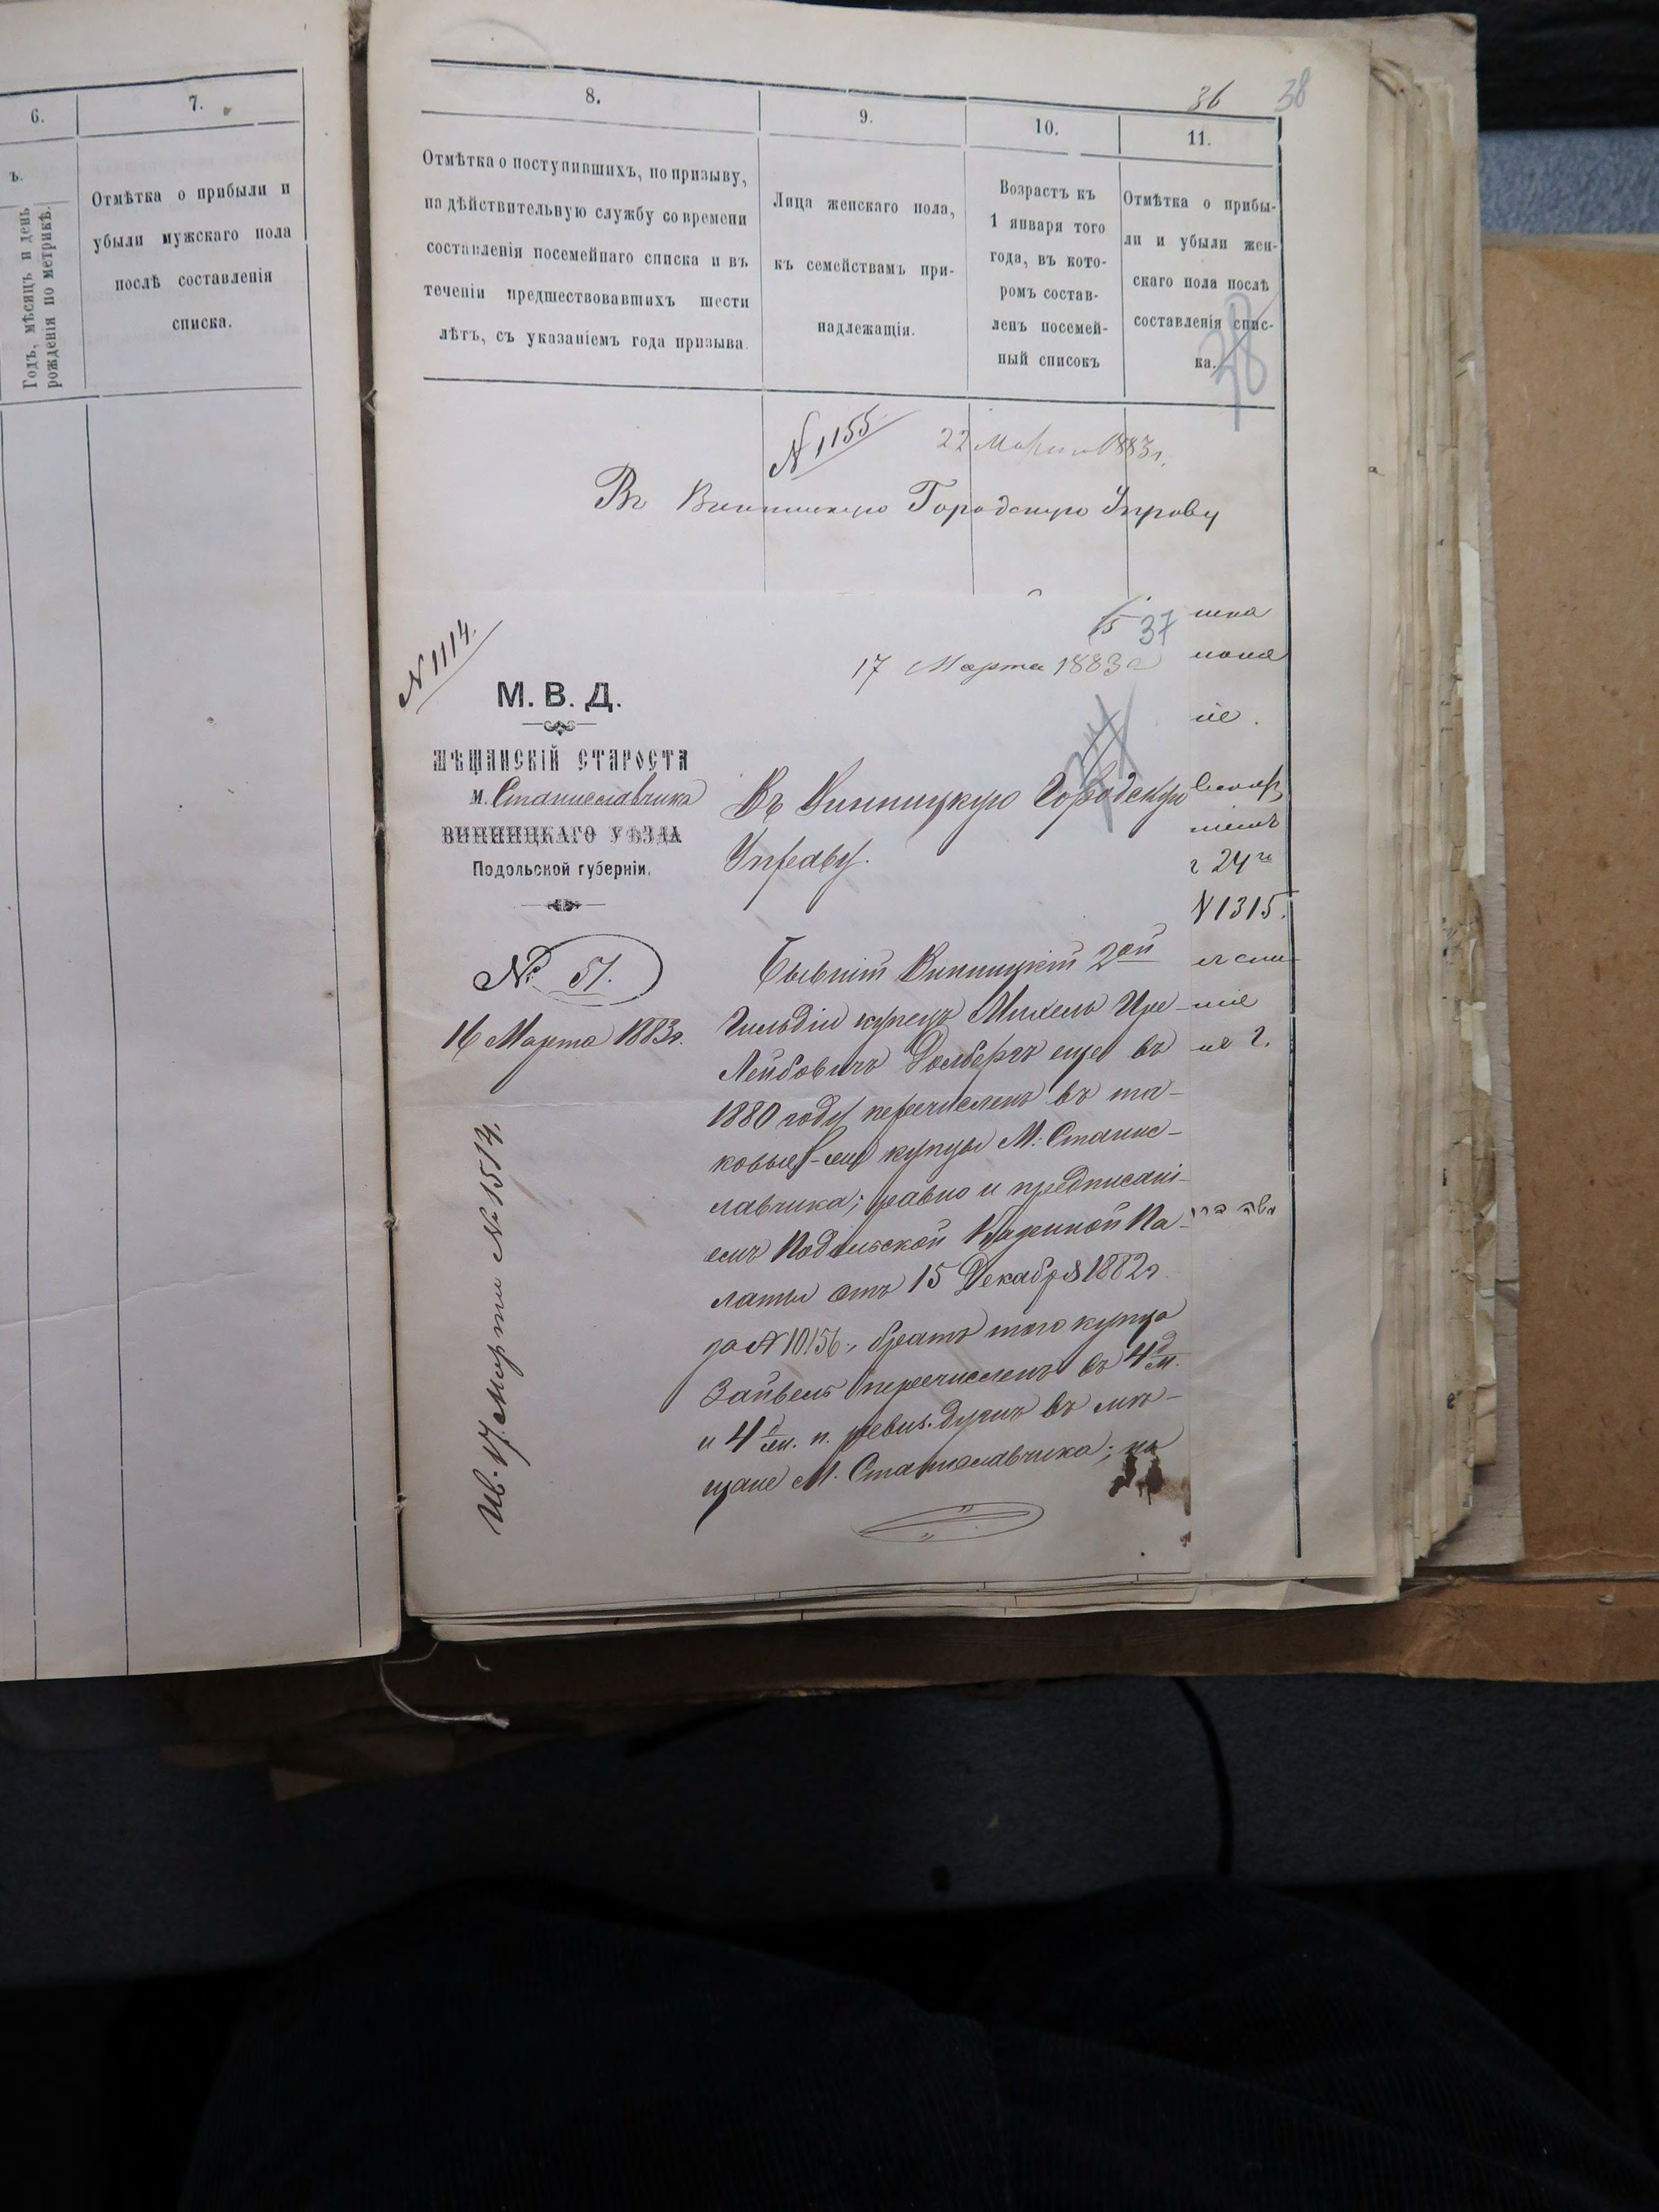 6.
7.
ъ.
Годъ, мѣсяцъ и день
рожденія по метрикѣ.
Отмѣтка о прибыли и
убыли мужскаго пола
послѣ составленія
списка.
36 38
8.
9.
10.
11.
Отмѣтка о поступившихъ, по призыву,
на дѣйствительную службу со времени
составленія посемейнаго списка и въ
теченіи предшествовавшихъ шести
лѣтъ, съ указаніемъ года призыва.
Лица женскаго пола,
къ семействамъ при-
надлежащія.
Возрастъ къ
1 января того
года, въ кото-
ромъ состав-
ленъ посемей-
ный списокъ
Отмѣтка о прибы-
ли и убыли жен-
скаго пола послѣ
составленія спис-
ка.
38
N 1155
22 Марта 1883 г.
Въ Винницкую Городскую Управу
N 1114.
15 37
17 Марта 1883 г
М. В. Д.
МѢЩАНСКІЙ СТАРОСТА
м. Станиславчика
ВИННИЦКАГО УѢЗДА
Подольской губерніи.
№ 51.
16 Марта 1883 г.
Въ Винницкую Городскую
Управу.
Бывшій Винницкій 2ой
Гильдіи купецъ Михель
Лейбовичъ Долбергъ еще въ
1880 году перечисленъ въ та-
ковые-же купцы М. Станис-
лавчика; равно и предписані-
емъ Подольской Казенной Па-
латы отъ 15 Декабря 1882 г
за N 10156, братъ того купца
Зайвель перечисленъ въ 4 д. м.
и 4 д. ж. п. ревиз. душъ въ мѣ-
щане М. Станиславчика; на
17 Марта № 1514.
г 24го
N 1315.